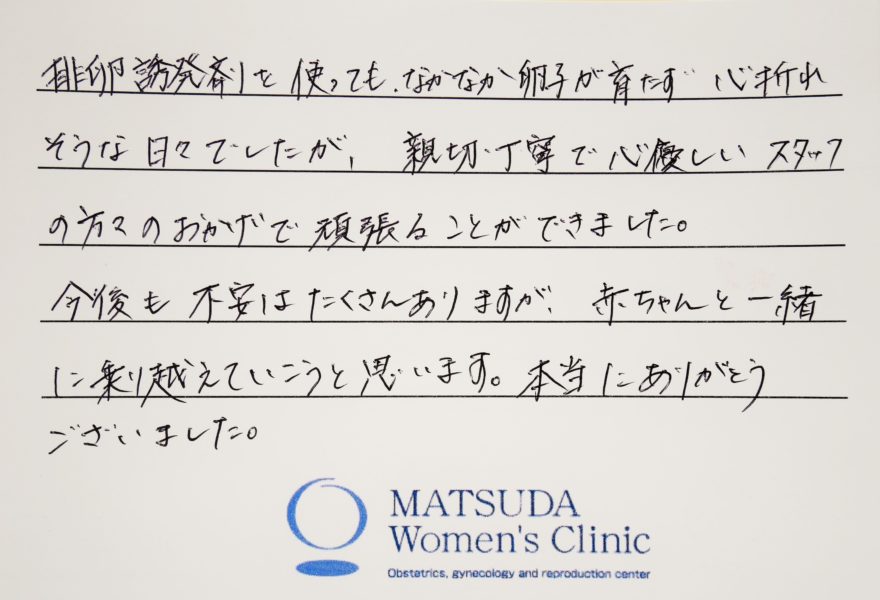 排卵誘発剤を使っても、なかなか卵子が育たず 心折れ
そうな日々でしたが、親切・丁寧で心優しいスタッフ
の方々のおかげで頑張ることができました。
今後も不安はたくさんありますが、赤ちゃんと一緒
に乗り越えていこうと思います。本当にありがとう
ございました。
MATSUDA
Women's Clinic
Obstetrics, gynecology and reproduction center